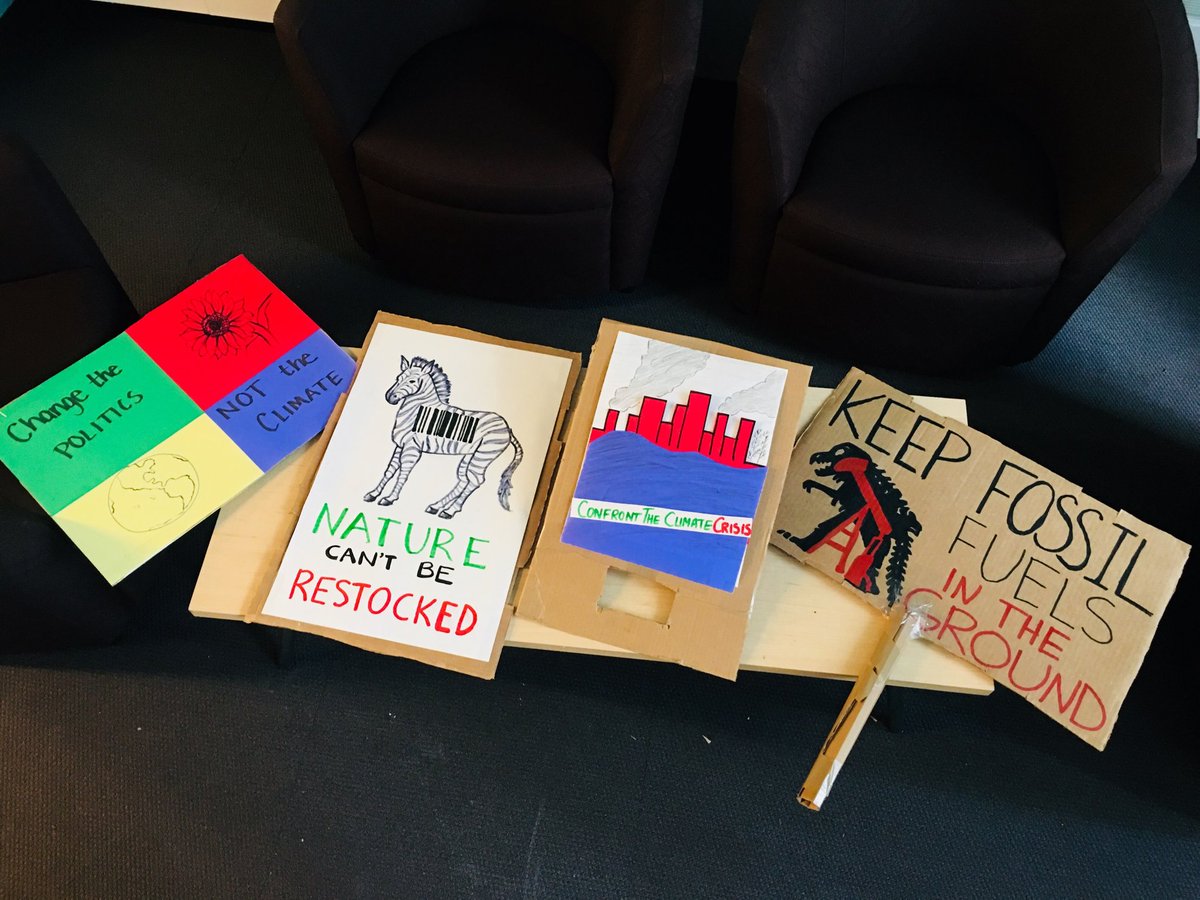 Change the
POLITICS
NOT the
CLIMATE
NATURE
CAN'T BE
RESTOCKED
CONFRONT THE CLIMATE CRISIS
KEEP FOSSIL
FUELS
IN THE
GROUND